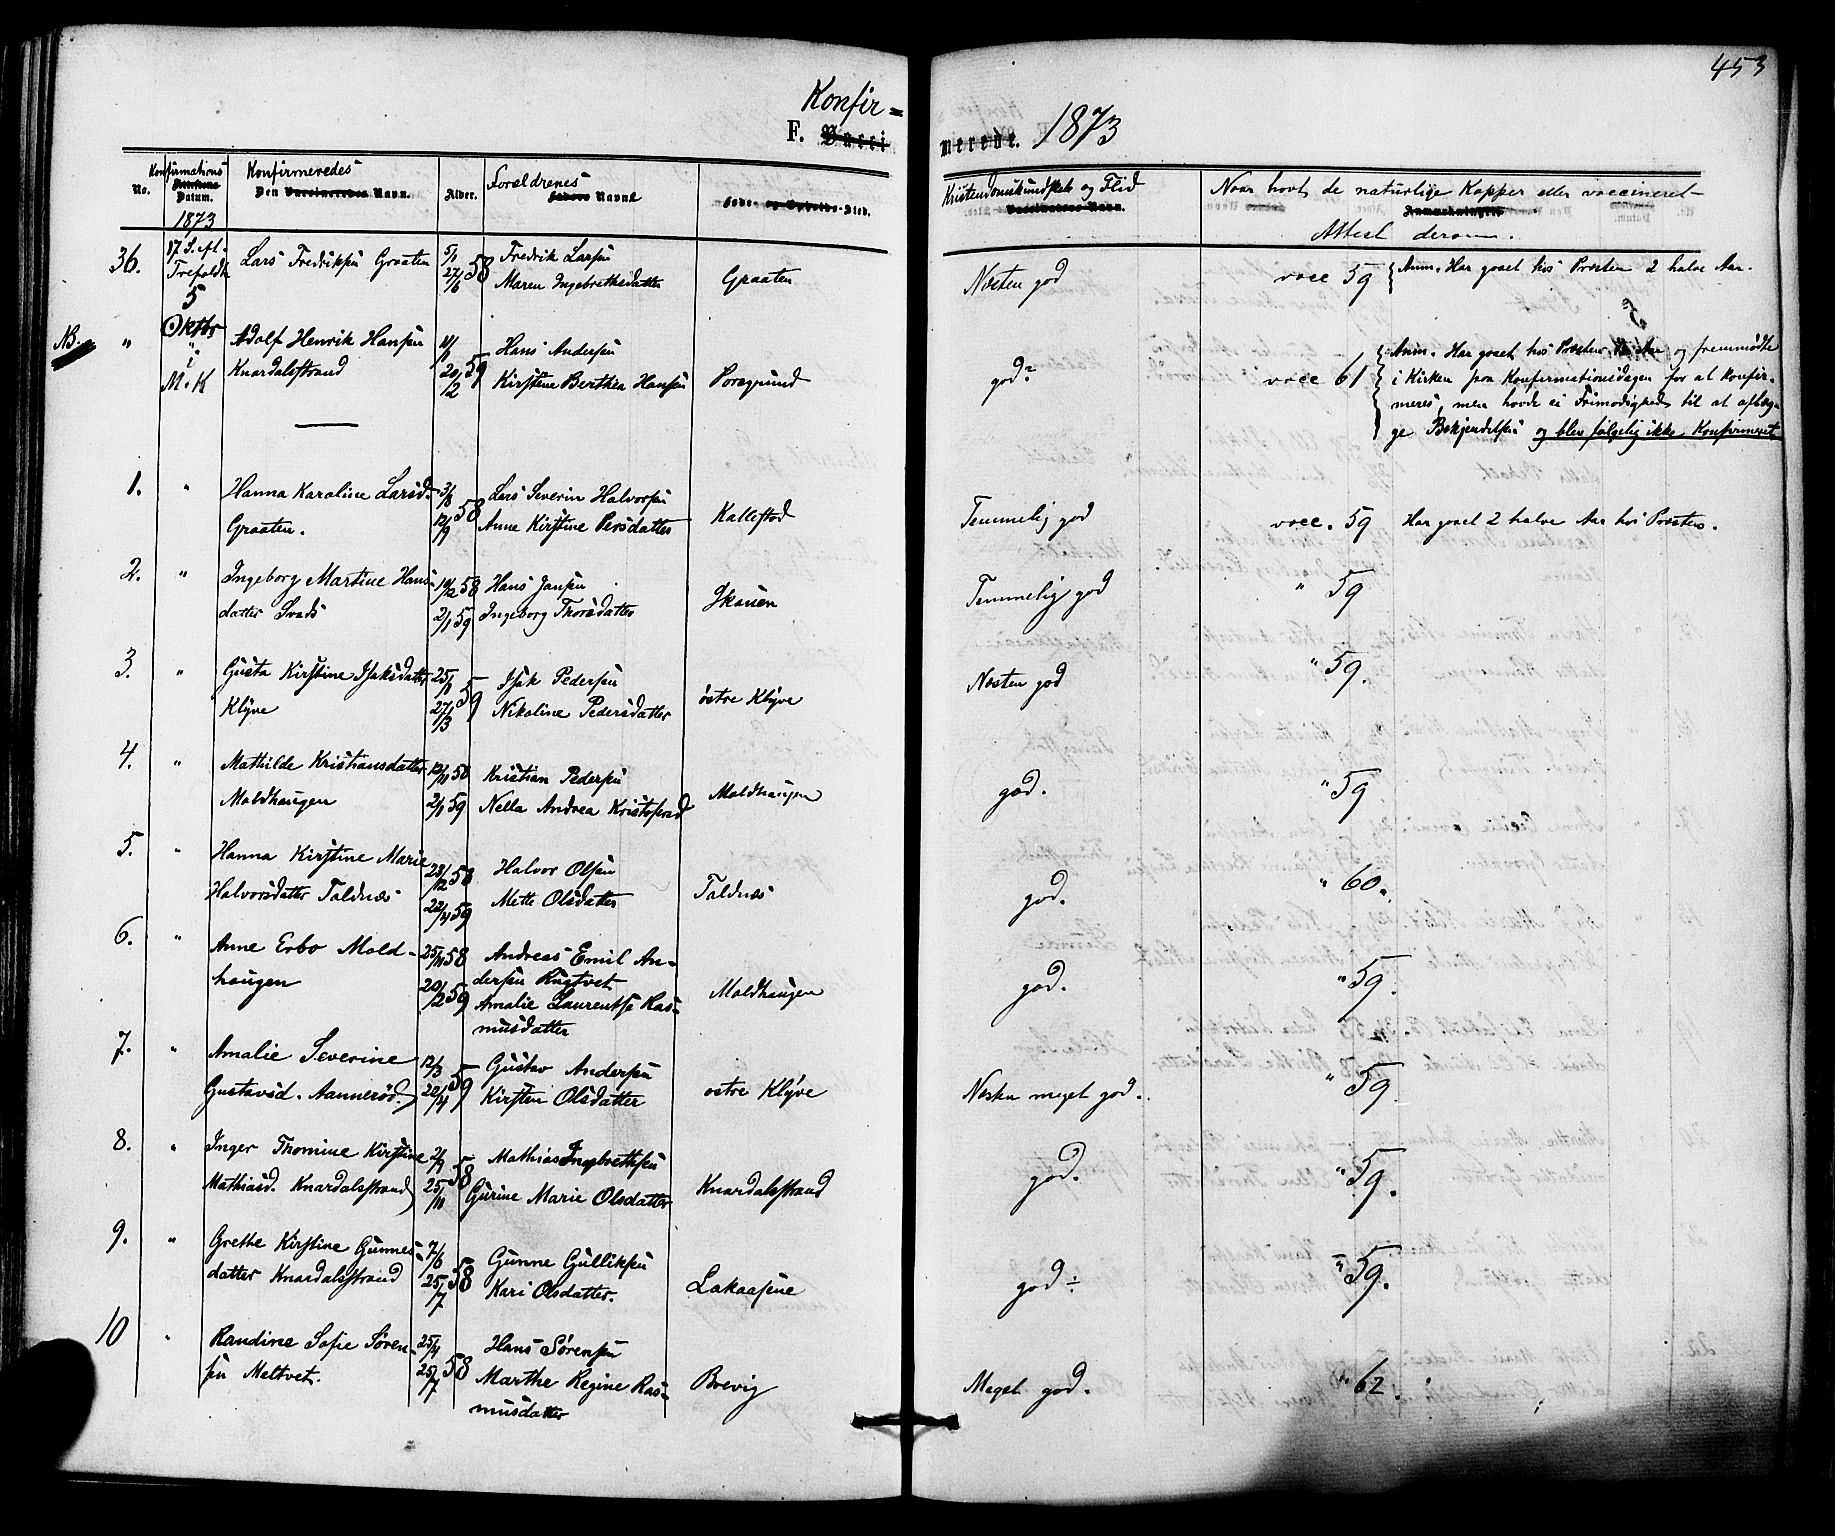 453
Konfir=
F. Vacci
merede. 1873
No.
Konfirmations
Datum.
1873
Konfirmeredes
Den Vaccineredes Navn.
Alder.
Forældrenes
Faders Navn
Føde- og Opholds-Sted.
Kristendomskundskab og Flid
Vaccinatørens Navn.
Naar havt de naturlige Kopper eller vaccineret
Anmærkninger
Attest derom.
36. 17. S. eft. Lars Fredriksen Graaten 5/1 58 Fredrik Larsen
Trefoldh. 27/6 Maren Ingebrethsdatter Graaten Næsten god vacc 59 Anm. Har gaaet hos Præsten 2 halve Aar.
5
Oktbr
NB. " " Adolf Henrik Hansen 11/1 59 Hans Andersen
i Knardalsstrand 20/2 Kirstine Berthea Hansen Porsgrund god? vacc 61
M. K
3
Anm. Har gaaet hos Præsten Aar og fremmødte
i Kirken paa Konfirmationsdagen for at konfir-
meres, men havde ei Frimodighed til at aflæg-
ge Bekjendelsen og blev følgelig ikke Konfirmeret
1. " Hanna Karoline Larsd. 3/8 58 Lars Severin Halvorsen
Graaten. 12/9 Anne Kirstine Persdatter Kallestad Temmelig god vacc. 59 Har gaaet 2 halve Aar hos Præsten.
2. " Ingeborg Martine Hans- 10/12 58 Hans Jansen
datter Srads 2/1 59 Ingeborg Thorsdatter Skauen Temmelig god " 59
3. " Gusta Kirstine Isaksdatter 25/1 59 Isak Pedersen
Klyve 27/3 Nikoline Pedersdatter østre Klyve Næsten god " 59.
4. " Mathilde Kristiansdatter 12/10 58 Kristian Pedersen
Moldhaugen 2/1 59 Nella Andrea Kristofersd Moldhaugen god. " 59
5. " Hanna Kirstine Marie 23/12 58 Halvor Olsen
Halvorsdatter Taldnæs 22/4 59 Mette Olsdatter Taldnæs god. " 60.
6. " Anne Erbo Mold- 25/11 58 Andreas Emil An-
haugen 20/2 59 dersen Rugtvet
Amalie Laurentse Ras-
musdatter Moldhaugen god. " 59.
7. " Amalie Severine 12/3 59 Gustav Andersen
Gustavsd. Aannerød. 22/4 Kirsten Olsdatter østre Klyve Næsten meget god. " 59.
8. " Inger Thomine Kirstine 2/9 58 Mathias Ingebrethsen
Mathiasd. Knardalsstrand 25/10 Gurine Marie Olsdatter Knardalsstrand god. " 59.
9. " Grethe Kirstine Gunnes- 7/6 58 Gunne Gulliksen
datter Knardalsstrand 25/7 Kari Olsdatter. Lakaasene god ÷ " 59.
10 " Randine Sofie Søren- 25/4 58 Hans Sørensen
sen Meltvet. 25/7 Marthe Regine Ras-
musdatter Brevig Meget god. " 62.